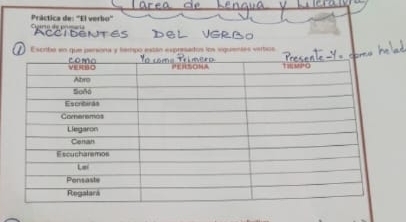 Tarea de Lengua y Literatura
Práctica de: "El verbo"
Cuarto de primaria
ACCIDENTES DEL VERBO
① Escribe en que persona y tiempo están expresados los siguientes verbos.
como Yo como Primera Presente-Yo como helad
VERBO PERSONA TIEMPO
Abro
Soñó
Escribirás
Comeremos
Llegaron
Cenan
Escucharemos
Leí
Pensaste
Regalará